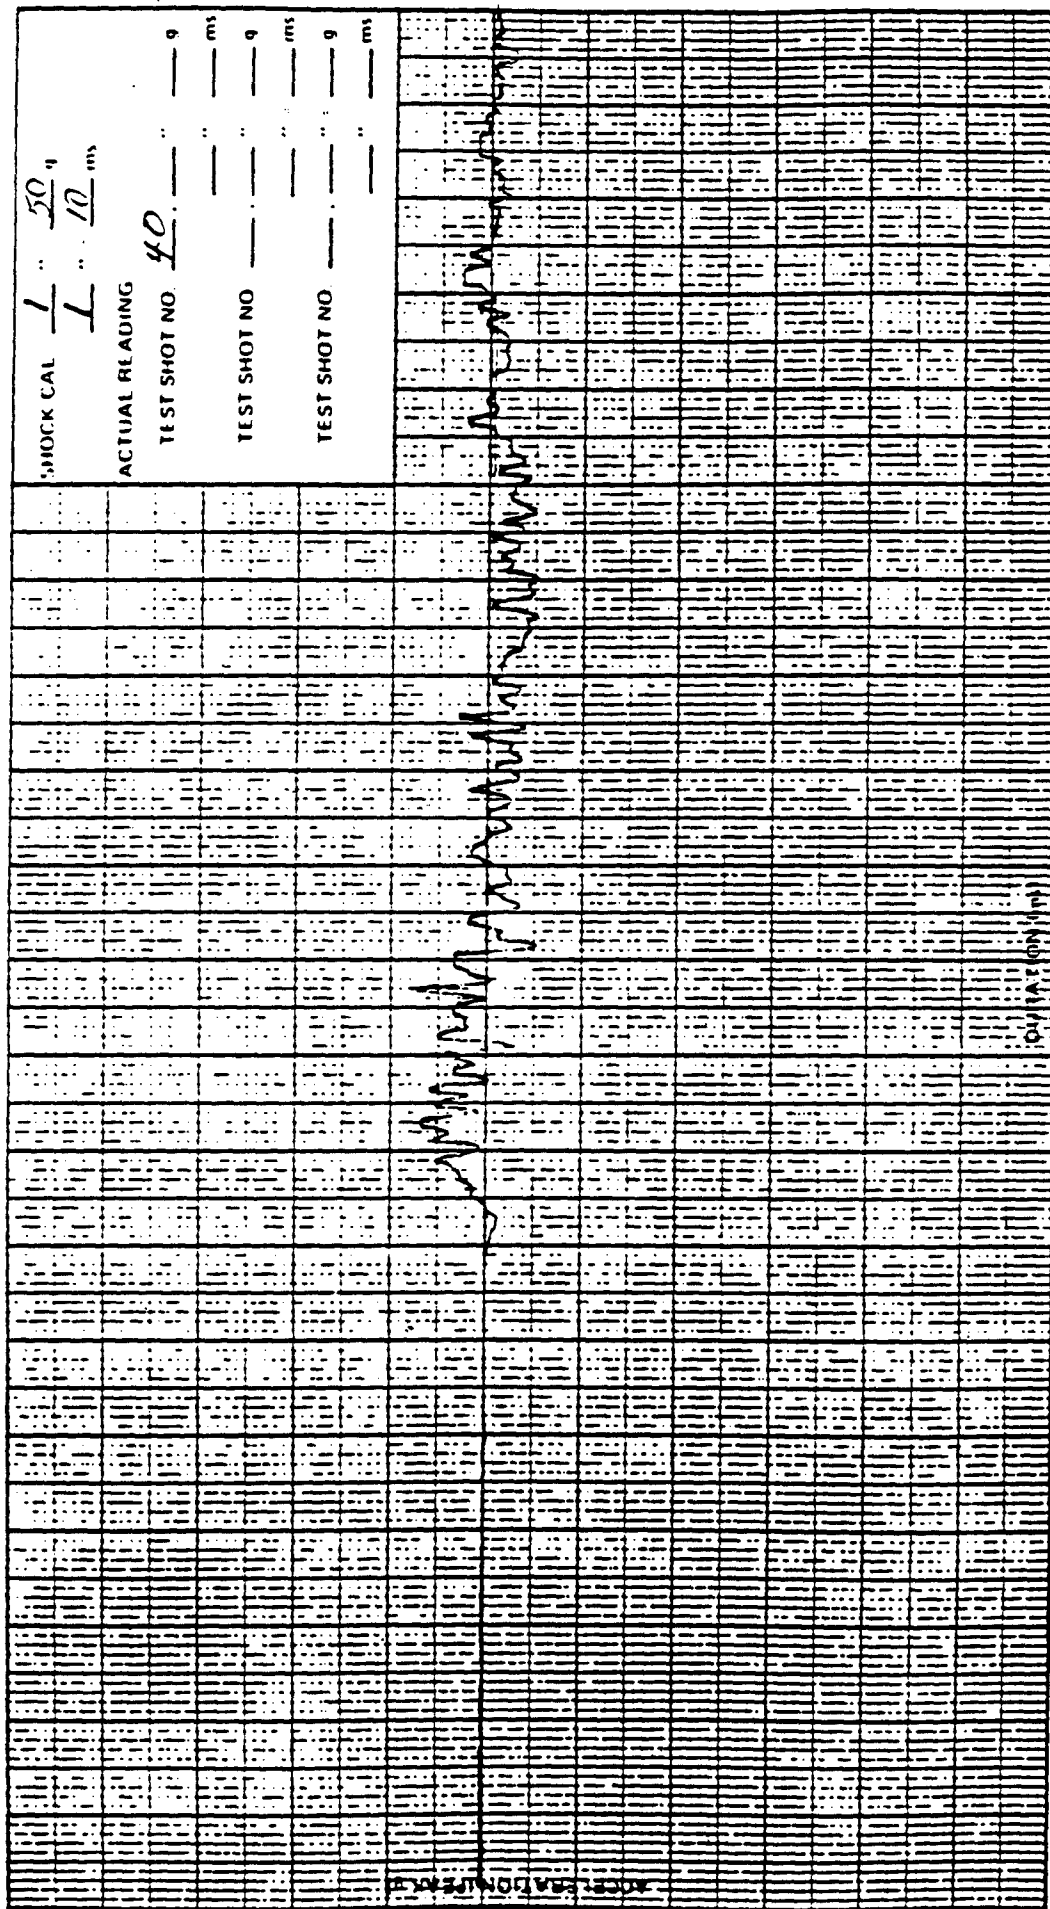 SHOCK CAL 1 " 50 g
1 " 10 ms
ACTUAL READING
TEST SHOT NO. 40 . ____ " ____ g
____ " ____ ms
TEST SHOT NO ____ . ____ " ____ g
____ " ____ ms
TEST SHOT NO. ____ . ____ " ____ g
____ " ____ ms
DURATION
ACCELERATION